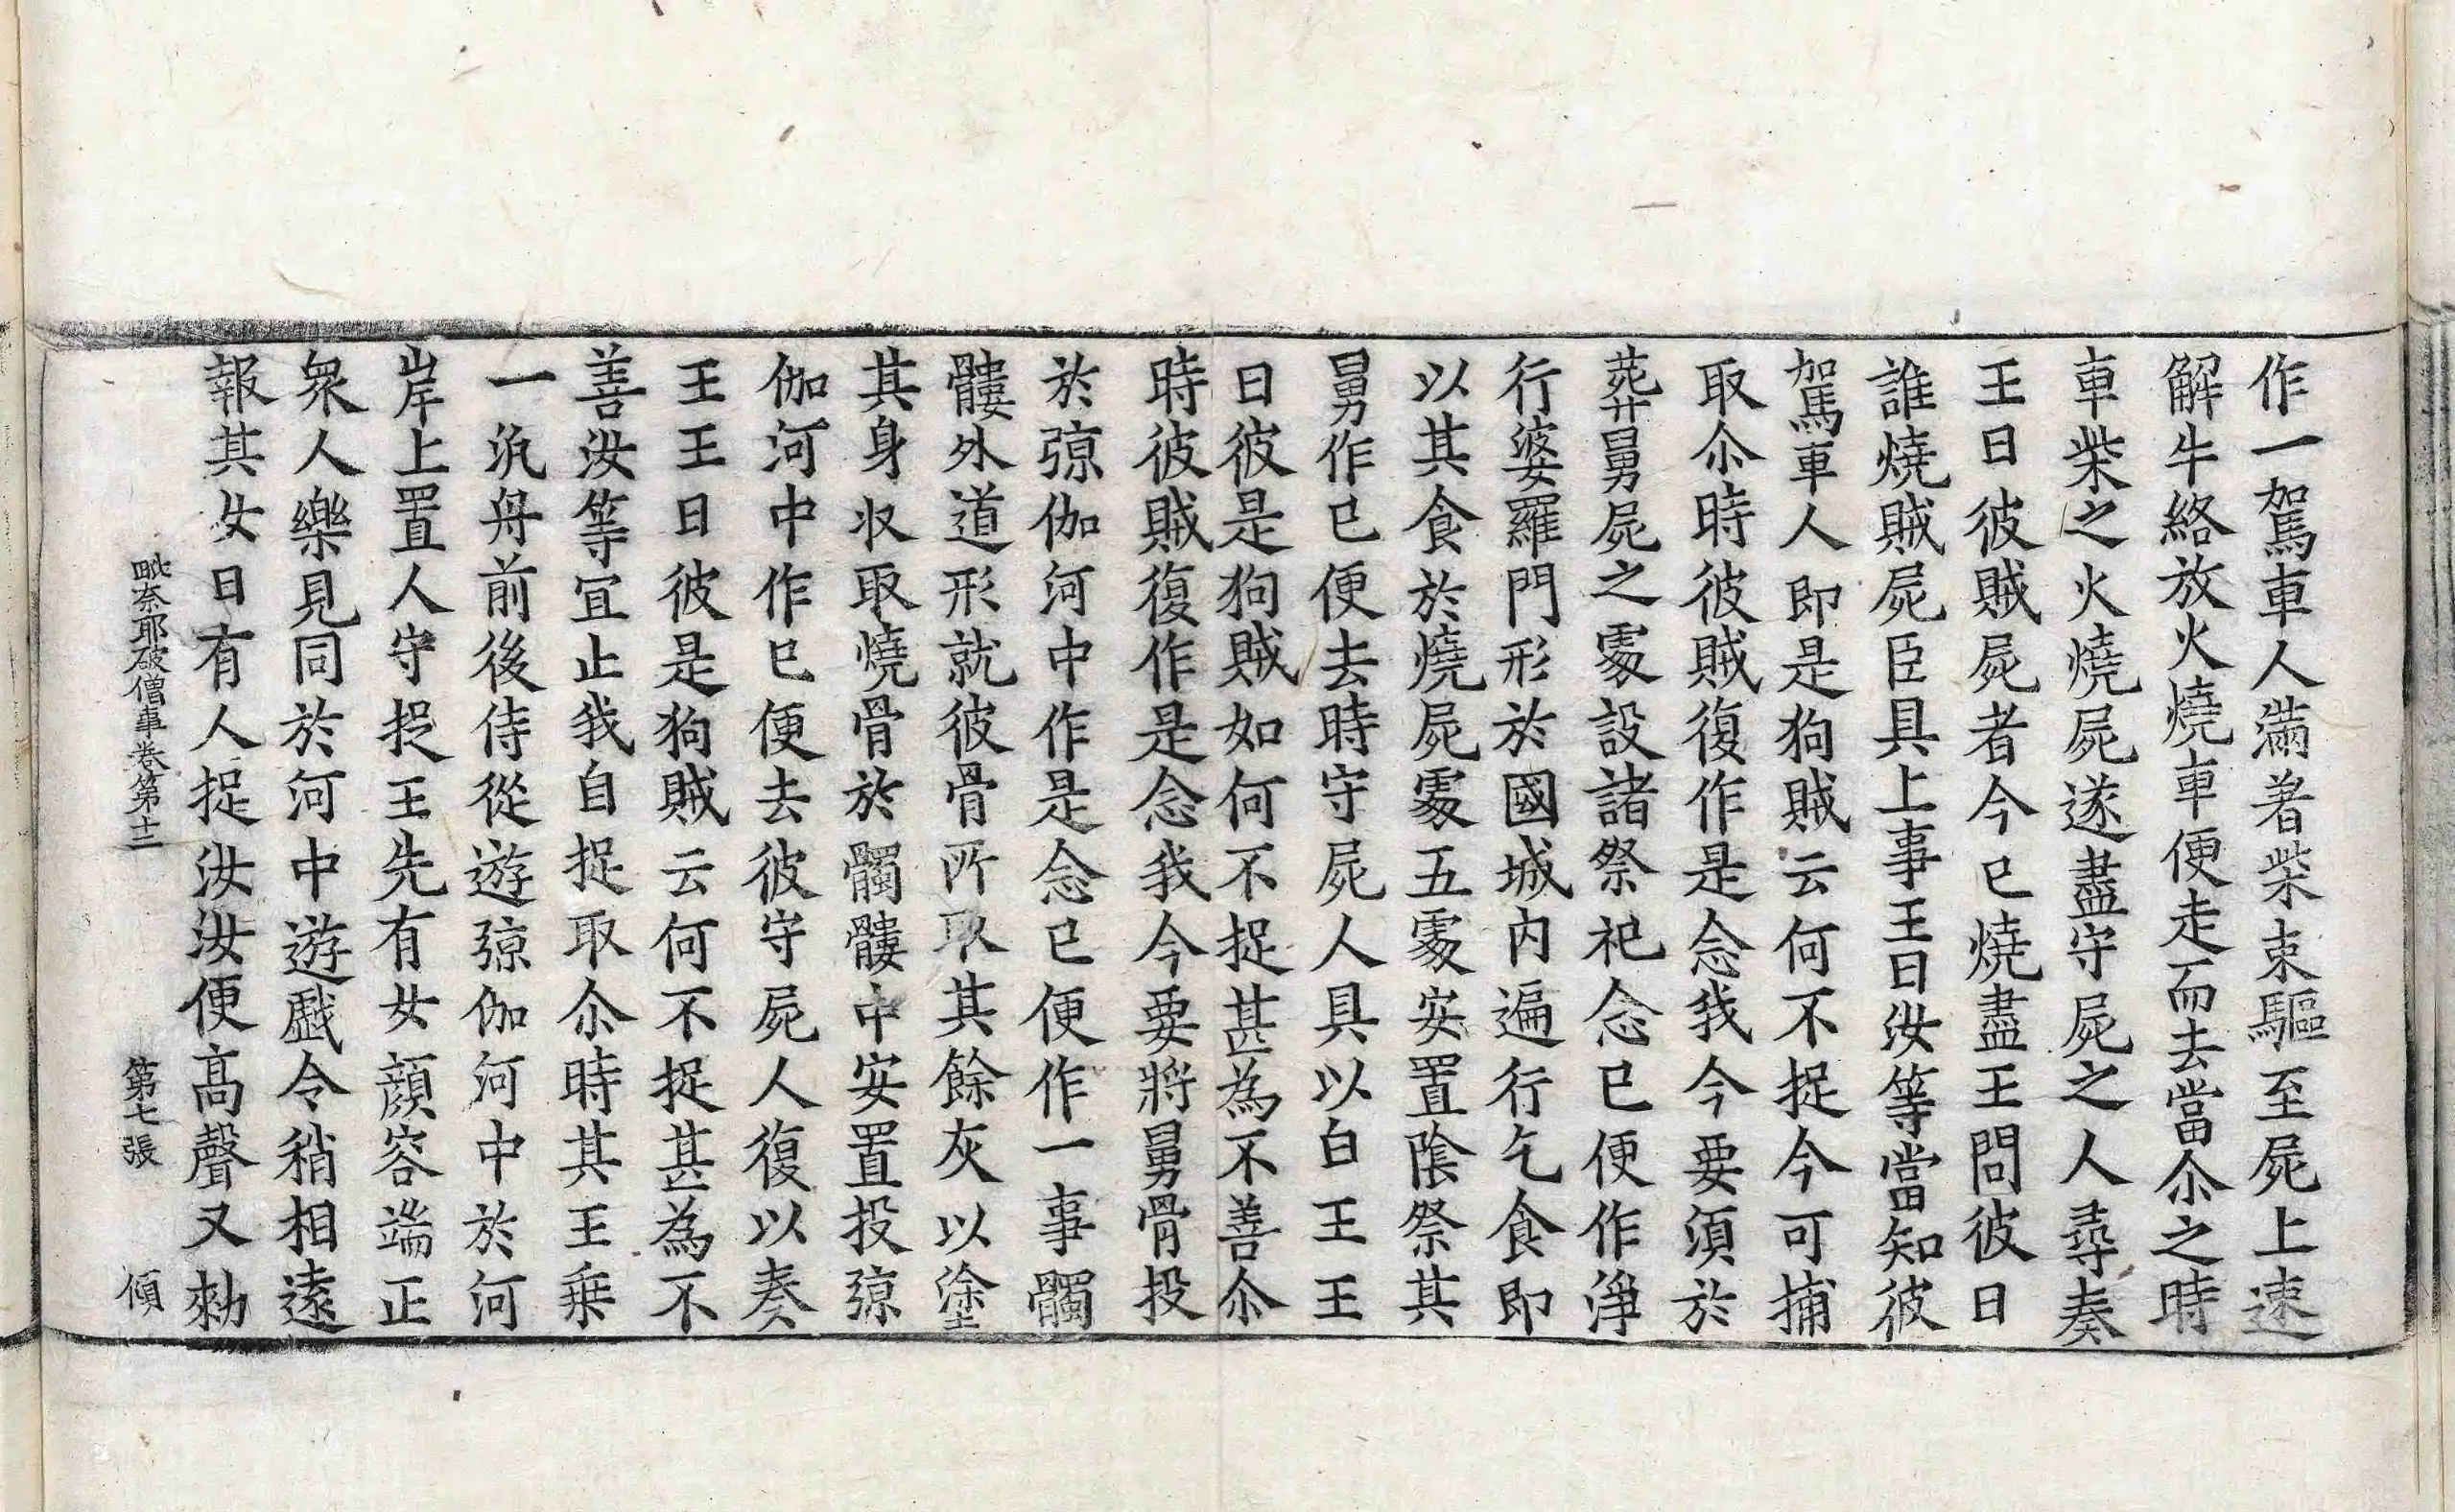 作一駕車人滿著柴束驅至屍上速
解牛絡放火燒車便走而去當尒之時
車柴之火燒屍遂盡守屍之人尋奏
王曰彼賊屍者今已燒盡王問彼曰
誰燒賊屍臣具上事王曰汝等當知彼
駕車人即是狗賊云何不捉今可捕
取尒時彼賊復作是念我今要須於
葬舅屍之䖏設諸祭祀念已便作淨
行婆羅門形於國城內遍行乞食即
以其食於燒屍䖏五䖏安置陰祭其
舅作已便去時守屍人具以白王王
曰彼是狗賊如何不捉甚為不善尒
時彼賊復作是念我今要將舅骨投
於弶伽河中作是念已便作一事髑
髏外道形就彼骨所取其餘灰以塗
其身收取燒骨於髑髏中安置投弶
伽河中作已便去彼守屍人復以奏
王王曰彼是狗賊云何不捉甚為不
善汝等宜止我自捉取尒時其王乗
一汎舟前後侍從遊弶伽河中於河
岸上置人守捉王先有女顏容端正
衆人樂見同於河中遊戲令稍相遠
報其女曰有人捉汝汝便高聲又勑
毗奈耶破僧事卷第十二 第七張 傾